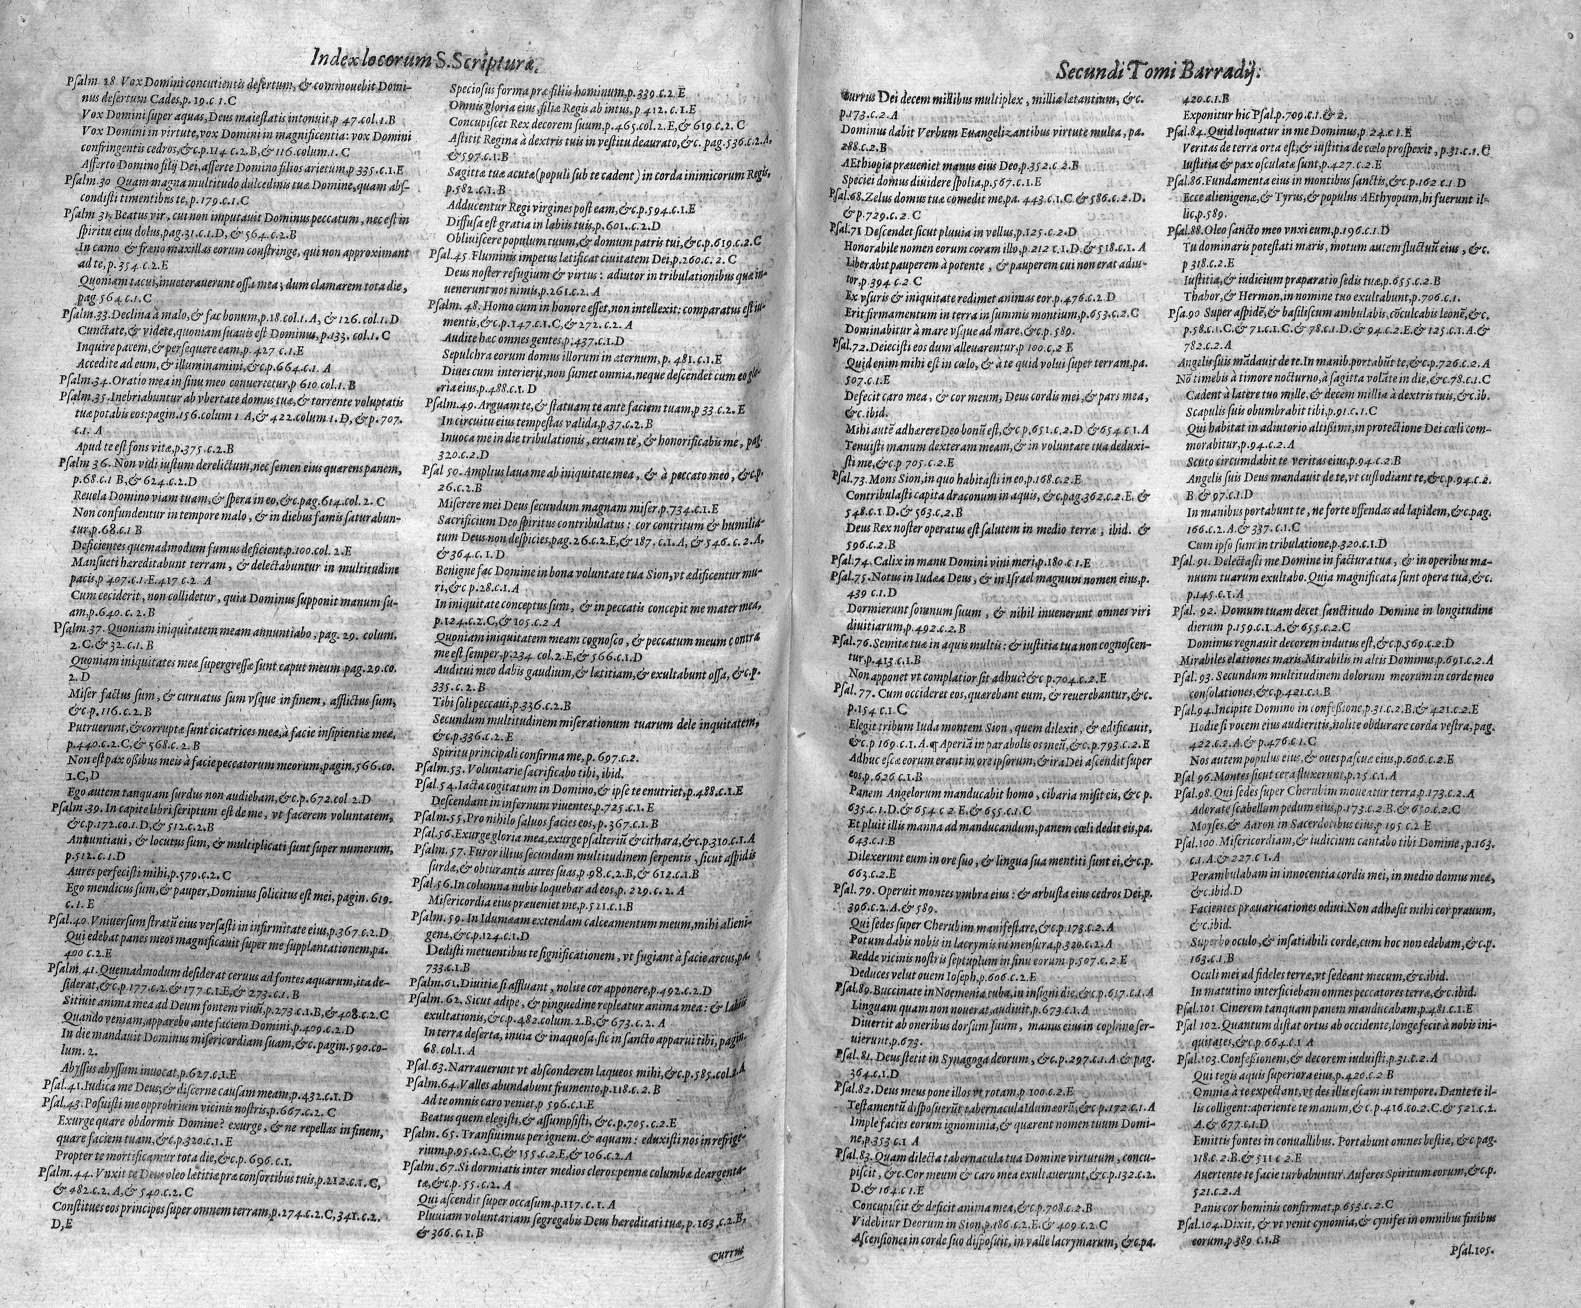 Index locorum S. Scripturæ,
Psalm. 28. Vox Domini concutientis desertum, & commouebit Domi-
nus desertum Cades, p. 19. c. 1. C
Vox Domini super aquas, Deus maiestatis intonuit, p 47. col. 1. B
Vox Domini in virtute, vox Domini in magnificentia: vox Domini
confringentis cedros, &c. p. 114 c. 2. B, & 116. colum. 1. C
Afferte Domino filij Dei, afferte Domino filios arietum, p 335. c. 1. E
Psalm. 30 Quam magna multitudo dulcedinis tuæ Domine, quam abs-
condisti timentibus te, p. 179. c. 1. C
Psalm 31. Beatus vir, cui non imputauit Dominus peccatum, nec est in
spiritu eius dolus, pag. 31. c. 1. D, & 564. c. 2. B
In camo & fræno maxillas eorum constringe, qui non approximant
ad te, p. 354. c. 2. E
Quoniam tacui, inueterauerunt ossa mea, dum clamarem tota die,
pag. 564 c. 1. C
Psalm. 33. Declina à malo, & fac bonum, p. 18. col. 1. A, & 126. col. 1. D
Gustate, & videte, quoniam suauis est Dominus, p. 133. col. 1. C
Inquire pacem, & persequere eam, p. 427 c. 1. E
Accedite ad eum, & illuminamini, &c. p. 664. c. 1. A
Psalm. 34. Oratio mea in sinu meo conuertetur, p 610. col. 1. B
Psalm. 35. Inebriabuntur ab vbertate domus tuæ, & torrente voluptatis
tuæ potabis eos: pagin. 156. colum 1 A, & 422. colum 1. D, & p. 707.
c. 1. A
Apud te est fons vitæ, p 375. c. 2. B
Psalm 36. Non vidi iustum derelictum, nec semen eius quærens panem,
p. 68. c. 1 B, & 624. c. 2. D
Reuela Domino viam tuam, & spera in eo, &c. pag. 614. col. 2. C
Non confundentur in tempore malo, & in diebus famis saturabun-
tur, p. 68. c. 1 B
Deficientes quemadmodum fumus deficient, p. 100. col. 2. E
Mansueti hæreditabunt terram, & delectabuntur in multitudine
pacis, p 407. c. 1. E. 417 c. 2. A
Cum ceciderit, non collidetur, quia Dominus supponit manum su-
am, p. 640. c. 2. B
Psalm. 37. Quoniam iniquitatem meam annuntiabo, pag. 29. colum.
2. C. & 32. c. 1. B
Quoniam iniquitates meæ supergressæ sunt caput meum pag. 29. co.
2. D
Miser factus sum, & curuatus sum vsque in finem, afflictus sum,
&c p. 116. c. 2. B
Putruerunt, & corruptæ sunt cicatrices meæ, à facie insipientiæ meæ,
p. 440. c. 2. C, & 568. c. 2. B
Non est pax ossibus meis à facie peccatorum meorum, pagin. 566. co.
1. C, D
Ego autem tanquam surdus non audiebam, &c. p. 672. col 2. D
Psalm. 39. In capite libri scriptum est de me, vt facerem voluntatem,
&c. p. 172. co. 1. D, & 512. c. 2. B
Annuntiaui, & locutus sum, & multiplicati sunt super numerum,
p. 512. c. 1. D
Aures perfecisti mihi, p. 579. c. 2. C
Ego mendicus sum, & pauper, Dominus solicitus est mei, pagin. 619.
c. 1. E
Psal. 40. Vniuersum stratũ eius versasti in infirmitate eius, p. 367. c. 2. D
Qui edebat panes meos magnificauit super me supplantationem, pa.
400 c. 2. E
Psalm. 41. Quemadmodum desiderat ceruus ad fontes aquarum, ita de-
siderat, &c. p. 177. c. 2. & 177. c. 1. E, & 273. c. 1. B
Sitiuit anima mea ad Deum fontem viuũ, p. 273 c. 1. B, & 408. c. 2. C
Quando veniam, apparebo ante faciem Domini, p. 409. c. 2. D
In die mandauit Dominus misericordiam suam, &c. pagin. 590. co-
lum. 2.
Abyssus abyssum inuocat, p. 627. c. 1. E
Psal. 41. Iudica me Deus, & discerne causam meam, p. 432. c. 1. D
Psal. 43. Posuisti me opprobrium vicinis nostris, p. 667. c. 2. C
Exurge quare obdormis Domine? exurge, & ne repellas in finem,
quare faciem tuam, &c. p. 320. c. 1. E
Propter te mortificamur tota die, &c. p. 696. c. 1.
Psalm. 44. Vnxit te Deus oleo lætitiæ præ consortibus tuis, p. 212. c. 1. C,
& 482. c. 2. A, & 540. c. 2. C
Constitues eos principes super omnem terram, p. 274. c. 2. C, 341. c. 2.
D, E
Speciosus forma præ filijs hominum, p. 339. c. 2 E
Omnis gloria eius, filiæ Regis ab intus, p 412. c. 1. E
Concupiscet Rex decorem suum, p. 465. col. 2. E, & 619. c. 2. C
Astitit Regina à dextris tuis in vestitu deaurato, &c. pag. 536. c. 2. A,
& 597. c. 1. B
Sagittæ tuæ acutæ (populi sub te cadent) in corda inimicorum Regis,
p. 582. c. 1. B
Adducentur Regi virgines post eam, &c. p. 594. c. 1. E
Diffusa est gratia in labijs tuis, p. 601. c. 2. D
Obliuiscere populum tuum, & domum patris tui, &c. p. 619. c. 2. C
Psal. 45. Fluminis impetus lætificat ciuitatem Dei, p. 260. c. 2. C
Deus noster refugium & virtus: adiutor in tribulationibus quæ in-
uenerunt nos nimis, p. 261. c. 2. A
Psalm. 48. Homo cum in honore esset, non intellexit: comparatus est iu-
mentis, &c. p. 147. c. 1. C, & 272. c. 2. A
Audite hæc omnes gentes, p. 437. c. 1. D
Sepulchra eorum domus illorum in æternum, p. 481. c. 1. E
Diues cum interierit, non sumet omnia, neque descendet cum eo glo-
ria eius, p. 488. c. 1. D
Psalm. 49. Arguam te, & statuam te ante faciem tuam, p 33. c. 2. E
In circuitu eius tempestas valida, p. 37. c. 2. B
Inuoca me in die tribulationis, eruam te, & honorificabis me, pag.
320. c. 2. D
Psal 50. Amplius laua me ab iniquitate mea, & à peccato meo, &c. p.
26. c. 2. B
Miserere mei Deus secundum magnam miser. p. 734. c. 1. E
Sacrificium Deo spiritus contribulatus: cor contritum & humilia-
tum Deus non despicies, pag. 26. c. 2. E, & 187. c. 1. A, & 546. c. 2. A,
& 364. c. 1. D
Benigne fac Domine in bona voluntate tua Sion, vt ædificentur mu-
ri, &c p. 28. c. 1. A
In iniquitate conceptus sum, & in peccatis concepit me mater mea,
p. 124. c. 2. C, & 105. c. 2 A
Quoniam iniquitatem meam cognosco, & peccatum meum contra
me est semper, p. 234. col. 2. E, & 566. c. 1. D
Auditui meo dabis gaudium, & lætitiam, & exultabunt ossa, &c. p.
335. c. 2. B
Tibi soli peccaui, p. 336. c. 2. B
Secundum multitudinem miserationum tuarum dele iniquitatem,
&c. p. 336. c. 2. E
Spiritu principali confirma me, p. 697. c. 2.
Psalm. 53. Voluntarie sacrificabo tibi, ibid.
Psal. 54. Iacta cogitatum in Domino, & ipse te enutriet, p. 488. c. 1. E
Descendant in infernum viuentes, p. 725. c. 1. E
Psalm. 55. Pro nihilo saluos facies eos, p. 367. c. 1. B
Psal. 56. Exurge gloria mea, exurge psalteriũ & cithara, &c. p. 310. c. 1. A
Psalm. 57. Furor illius secundum multitudinem serpentis, sicut aspidis
surdæ, & obturantis aures suas, p. 98. c. 2. B, & 612. c. 1. B
Psal. 56. In columna nubis loquebar ad eos, p. 229. c. 2. A
Misericordia eius præueniet me, p. 521. c. 1. B
Psalm. 59. In Idumæam extendam calceamentum meum, mihi alieni-
genæ, &c. p. 124. c. 1. D
Dedisti metuentibus te significationem, vt fugiant à facie arcus, pa.
733. c. 1. B
Psalm. 61. Diuitiæ si affluant, nolite cor apponere, p. 492. c. 2. D
Psalm. 62. Sicut adipe, & pinguedine repleatur anima mea: & labijs
exultationis, &c. p. 482. colum. 2. B, & 673. c. 2. A
In terra deserta, inuia & inaquosa, sic in sancto apparui tibi, pagin.
68. col. 1. A
Psal. 63. Narrauerunt vt absconderem laqueos mihi, &c. p. 585. col. 2. A
Psalm. 64. Valles abundabunt frumento, p. 118. c. 2. B
Ad te omnis caro veniet, p 596. c. 1. E
Beatus quem elegisti, & assumpsisti, &c. p. 705. c. 2. E
Psalm. 65. Transiuimus per ignem, & aquam: eduxisti nos in refrige-
rium, p. 95. c. 2. C, & 155. c. 2. E, & 106. c. 2. A
Psalm. 67. Si dormiatis inter medios cleros: pennæ columbæ deargenta-
tæ, &c. p. 55. c. 2. A
Qui ascendit super occasum, p. 117. c. 1. A
Pluuiam voluntariam segregabis Deus hæreditati tuæ, p. 163. c. 2. B,
& 366. c. 1. B
Currus
Secundi Tomi Barradij.
Currus Dei decem millibus multiplex, millia lætantium, &c.
p. 173. c. 2. A
Dominus dabit Verbum Euangelizantibus virtute multa, pa.
288. c. 2. B
AEthiopia præueniet manus eius Deo, p. 352. c 2. B
Speciei domus diuidere spolia, p. 567. c. 1. E
Psal. 68. Zelus domus tuæ comedit me, pa. 443. c. 1. C & 586. c. 2. D.
& p. 729. c. 2 C
Psal. 71 Descendet sicut pluuia in vellus, p. 125. c. 2. D
Honorabile nomen eorum coram illo, p. 212 c. 1. D. & 518. c. 1. A
Liberabit pauperem à potente, & pauperem cui non erat adiu-
tor, p. 394 c. 2 C
Ex vsuris & iniquitate redimet animas eor, p. 476. c. 2 D
Erit firmamentum in terra in summis montium, p. 653. c. 2. C
Dominabitur à mare vsque ad mare, &c. p. 589.
Psal. 72. Deiecisti eos dum alleuarentur, p 100. c. 2 E
Quid enim mihi est in cœlo, & à te quid volui super terram, pa.
507. c. 1. E
Defecit caro mea, & cor meum, Deus cordis mei, & pars mea,
&c. ibid.
Mihi autẽ adhærere Deo bonũ est, &c p. 651. c. 2. D & 654 c. 1. A
Tenuisti manum dexteram meam, & in voluntate tua deduxi-
sti me, &c. p 705. c. 2. E
Psal. 73. Mons Sion, in quo habitasti in eo, p. 168. c. 2. E
Contribulasti capita draconum in aquis, &c. pag. 362. c. 2. E. &
548. c. 1. D. & 563. c. 2. B
Deus Rex noster operatus est salutem in medio terræ, ibid. &
596. c. 2. B
Psal. 74. Calix in manu Domini vini meri, p. 180 c. 1. E
Psal. 75. Notus in Iudæa Deus, & in Israel magnum nomen eius, p.
439 c. 1. D
Dormierunt somnum suum, & nihil inuenerunt omnes viri
diuitiarum, p. 492. c. 2. B
Psal. 76. Semitæ tuæ in aquis multis: & iustitia tua non cognoscen-
tur, p. 413 c. 1. B
Non apponet vt complatior sit adhuc? &c p. 704. c. 2. E
Psal. 77. Cum occideret eos, quærebant eum, & reuerebantur, &c.
p. 154 c. 1. C
Elegit tribum Iuda montem Sion, quem dilexit, & ædificauit,
&c. p 169. c. 1. A. ¶ Aperiã in parabolis os meũ, &c. p. 793. c. 2. E
Adhuc escæ eorum erant in ore ipsorum, & ira Dei ascendit super
eos, p. 626 c. 1. B
Panem Angelorum manducabit homo, cibaria misit eis, &c p.
635. c. 1. D. & 654 c 2 E, & 655. c. 1. C
Et pluit illis manna ad manducandum, panem cœli dedit eis, pa.
643. c. 1. B
Dilexerunt eum in ore suo, & lingua sua mentiti sunt ei, &c. p.
663. c. 2. E
Psal. 79. Operuit montes vmbra eius: & arbusta eius cedros Dei, p.
396. c. 2. A. & 589.
Qui sedes super Cherubim manifestare, &c. p. 173. c. 2. A
Potum dabis nobis in lacrymis in mensura, p. 320. c. 2. A
Redde vicinis nostris septuplum in sinu eorum. p. 507. c. 2 E
Deduces velut ouem Ioseph, p. 606. c. 2. E
Psal. 89. Buccinate in Noemenia tuba, in insigni die, &c. p. 617. c. 1. A
Linguam quam non nouerat, audiuit, p. 673 c. 1. A
Diuertit ab oneribus dorsum suum, manus eius in cophino ser-
uierunt, p. 673.
Psal. 81. Deus stetit in Synagoga deorum, &c. p. 297. c. 1. A & pag.
364. c. 1. D
Psal. 82. Deus meus pone illos vt rotam, p 100. c. 2. E
Testamentũ disposuerũt tabernacula Idumæorũ, &c p. 172. c. 1. A
Imple facies eorum ignominia, & quærent nomen tuum Domi-
ne, p. 353 c. 1 A
Psal. 83. Quam dilecta tabernacula tua Domine virtutum, concu-
piscit, &c. Cor meum & caro mea exultauerunt, &c. p. 132. c. 2.
D. & 164. c 1. E
Concupiscit & deficit anima mea, &c. p. 708. c. 2. B
Videbitur Deorum in Sion, p. 186. c. 2. E. & 409. c. 2. C
Ascensiones in corde suo disposuit, in valle lacrymarum, &c. pa.
420. c. 1. B
Exponitur hic Psal. p. 709. c. 1. & 2.
Psal. 84. Quid loquatur in me Dominus, p. 24. c. 1. E
Veritas de terra orta est, & iustitia de cœlo prospexit, p. 31. c. 1. C
Iustitia & pax osculatæ sunt, p. 427. c. 2. E
Psal. 86. Fundamenta eius in montibus sanctis, &c. p. 162 c. 1. D
Ecce alienigenæ, & Tyrus, & populus AEthyopum, hi fuerunt il-
lic, p. 589.
Psal. 88. Oleo sancto meo vnxi eum, p. 196. c. 1. D
Tu dominaris potestati maris, motum autem fluctuũ eius, &c.
p 318. c. 2. E
Iustitia, & iudicium præparatio sedis tuæ, p. 655. c. 2. B
Thabor, & Hermon, in nomine tuo exultabunt, p. 706. c. 1.
Psa. 90 Super aspidẽ, & basiliscum ambulabis, cõculcabis leonẽ, &c.
p. 58. c. 1. C. & 71. c. 1. C. & 78. c. 1. D. & 94. c. 2. E. & 125. c. 1. A. &
782. c. 2. A
Angelis suis mãdauit de te. In manib. portabũt te, &c. p. 726. c. 2. A
Nõ timebis à timore nocturno, à sagitta volãte in die, &c. 78. c. 1. C
Cadent à latere tuo mille, & decem millia à dextris tuis, &c. ib.
Scapulis suis obumbrabit tibi, p. 91. c. 1. C
Qui habitat in adiutorio altissimi, in protectione Dei cœli com-
morabitur, p. 94. c. 2. A
Scuto circumdabit te veritas eius, p. 94. c. 2. B
Angelis suis Deus mandauit de te, vt custodiant te, &c. p. 94. c. 2.
B & 97. c. 1. D
In manibus portabunt te, ne forte offendas ad lapidem, &c. pag.
166. c. 2. A. & 337. c. 1. C
Cum ipso sum in tribulatione, p. 320. c. 1. D
Psal. 91. Delectasti me Domine in factura tua, & in operibus ma-
nuum tuarum exultabo. Quia magnificata sunt opera tua, &c.
p. 145. c. 1. A
Psal. 92. Domum tuam decet sanctitudo Domine in longitudine
dierum p. 159. c. 1. A. & 655. c. 2. C
Dominus regnauit decorem indutus est, &c. p. 569. c. 2. D
Mirabiles elationes maris. Mirabilis in altis Dominus. p. 691. c. 2. A
Psal. 93. Secundum multitudinem dolorum meorum in corde meo
consolationes, &c. p. 421. c. 1. B
Psal. 94. Incipite Domino in confessione, p. 31. c. 2. B. & 421. c. 2. E
Hodie si vocem eius audieritis, nolite obdurare corda vestra, pag.
422. c. 2. A. & p. 476. c. 1. C
Nos autem populus eius, & oues pascuæ eius, p. 606. c. 2. E
Psal 96. Montes sicut cera fluxerunt, p. 15. c. 1. A
Psal. 98. Qui sedes super Cherubim moueatur terra, p. 173. c. 2. A
Adorate scabellum pedum eius, p. 173. c. 2. B. & 650. c. 2. C
Moyses, & Aaron in Sacerdotibus eius, p 195. c. 2 E
Psal. 100. Misericordiam, & iudicium cantabo tibi Domine, p. 163.
c. 1. A. & 227. c 1. A
Perambulabam in innocentia cordis mei, in medio domus meæ,
&c. ibid. D
Facientes præuaricationes odiui. Non adhæsit mihi cor prauum,
&c. ibid.
Superbo oculo, & insatiabili corde, cum hoc non edebam, &c. p.
163. c. 1. B
Oculi mei ad fideles terræ, vt sedeant mecum, &c. ibid.
In matutino interficiebam omnes peccatores terræ, &c. ibid.
Psal. 101. Cinerem tanquam panem manducabam, p. 481. c. 1. E
Psal 102. Quantum distat ortus ab occidente, longe fecit à nobis ini-
quitates, &c. p. 664. c. 1 A
Psal. 103. Confessionem, & decorem induisti, p. 31. c. 2. A
Qui tegis aquis superiora eius, p. 420. c. 2 B
Omnia à te expectant, vt des illis escam in tempore. Dante te il-
lis colligent: aperiente te manum, &c. p. 416. co. 2. C. & 521. c. 2.
A. & 677. c. 1. D
Emittis fontes in conuallibus. Portabunt omnes bestiæ, &c. pag.
118. c. 2. B. & 511 c. 2. E
Auertente te faciẽ turbabuntur. Auferes Spiritum eorum, &c. p.
521. c. 2. A
Panis cor hominis confirmat, p. 653. c. 2. C
Psal. 104. Dixit, & vt venit cynomia, & cynifes in omnibus finibus
eorum, p 389. c. 1. B
Psal. 105.